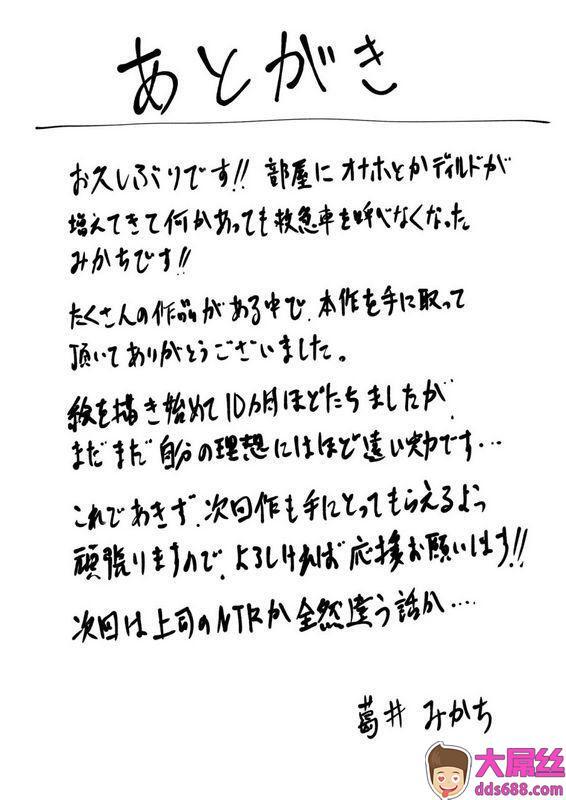 あとがき
お久しぶりです!! 部屋にオナホとかディルドが
増えてきて何かあっても救急車を呼べなくなった
みかちです!!
たくさんの作品がある中で、本作を手に取って
頂いてありがとうございました。
絵を描き始めて10ヵ月ほどたちましたが、
まだまだ自分の理想にはほど遠い実力です…
これであきず、次回作も手にとってもらえるよう
頑張りますので、よろしければ応援お願いします!!
次回は上司のNTRか全然違う話か….
葛井 みかち
大屌丝
dds688.com